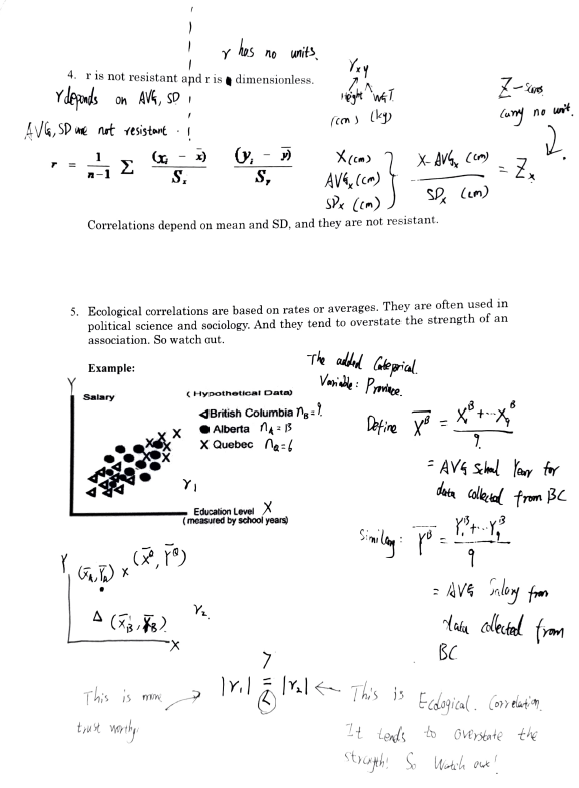 r has no units.
4. r is not resistant and r is dimensionless.
r depends on AVG, SD
AVG, SD are not resistant.
r xy
Height WGT.
(cm) (kg)
Z-scores
carry no unit.
r = 1/(n-1) Σ (xᵢ - x̄)/Sₓ (yᵢ - ȳ)/Sᵧ
X (cm)
AVGₓ (cm)
SDₓ (cm)
X - AVGₓ (cm) / SDₓ (cm) = Zₓ
Correlations depend on mean and SD, and they are not resistant.
5. Ecological correlations are based on rates or averages. They are often used in
political science and sociology. And they tend to overstate the strength of an
association. So watch out.
Example:
The added Categorical
Variable: Province.
Y
Salary
(Hypothetical Data)
British Columbia n_B = 9
Alberta n_A = 13
X Quebec n_Q = 6
r₁
Education Level X
(measured by school years)
Define X̄ᴮ = X₁ᴮ + ... X₉ᴮ / 9
= AVG School Year for
data collected from BC
Similarly: Ȳᴮ = Y₁ᴮ + ... Y₉ᴮ / 9
= AVG Salary from
data collected from
BC
Y
(X̄_A, Ȳ_A) x (X̄^Q, Ȳ^Q)
Δ (X̄_B, Ȳ_B)
r₂
X
|r₁| > = < |r₂|
This is more
trust worthy
This is Ecological. Correlation.
It tends to overstate the
strength! So Watch out!